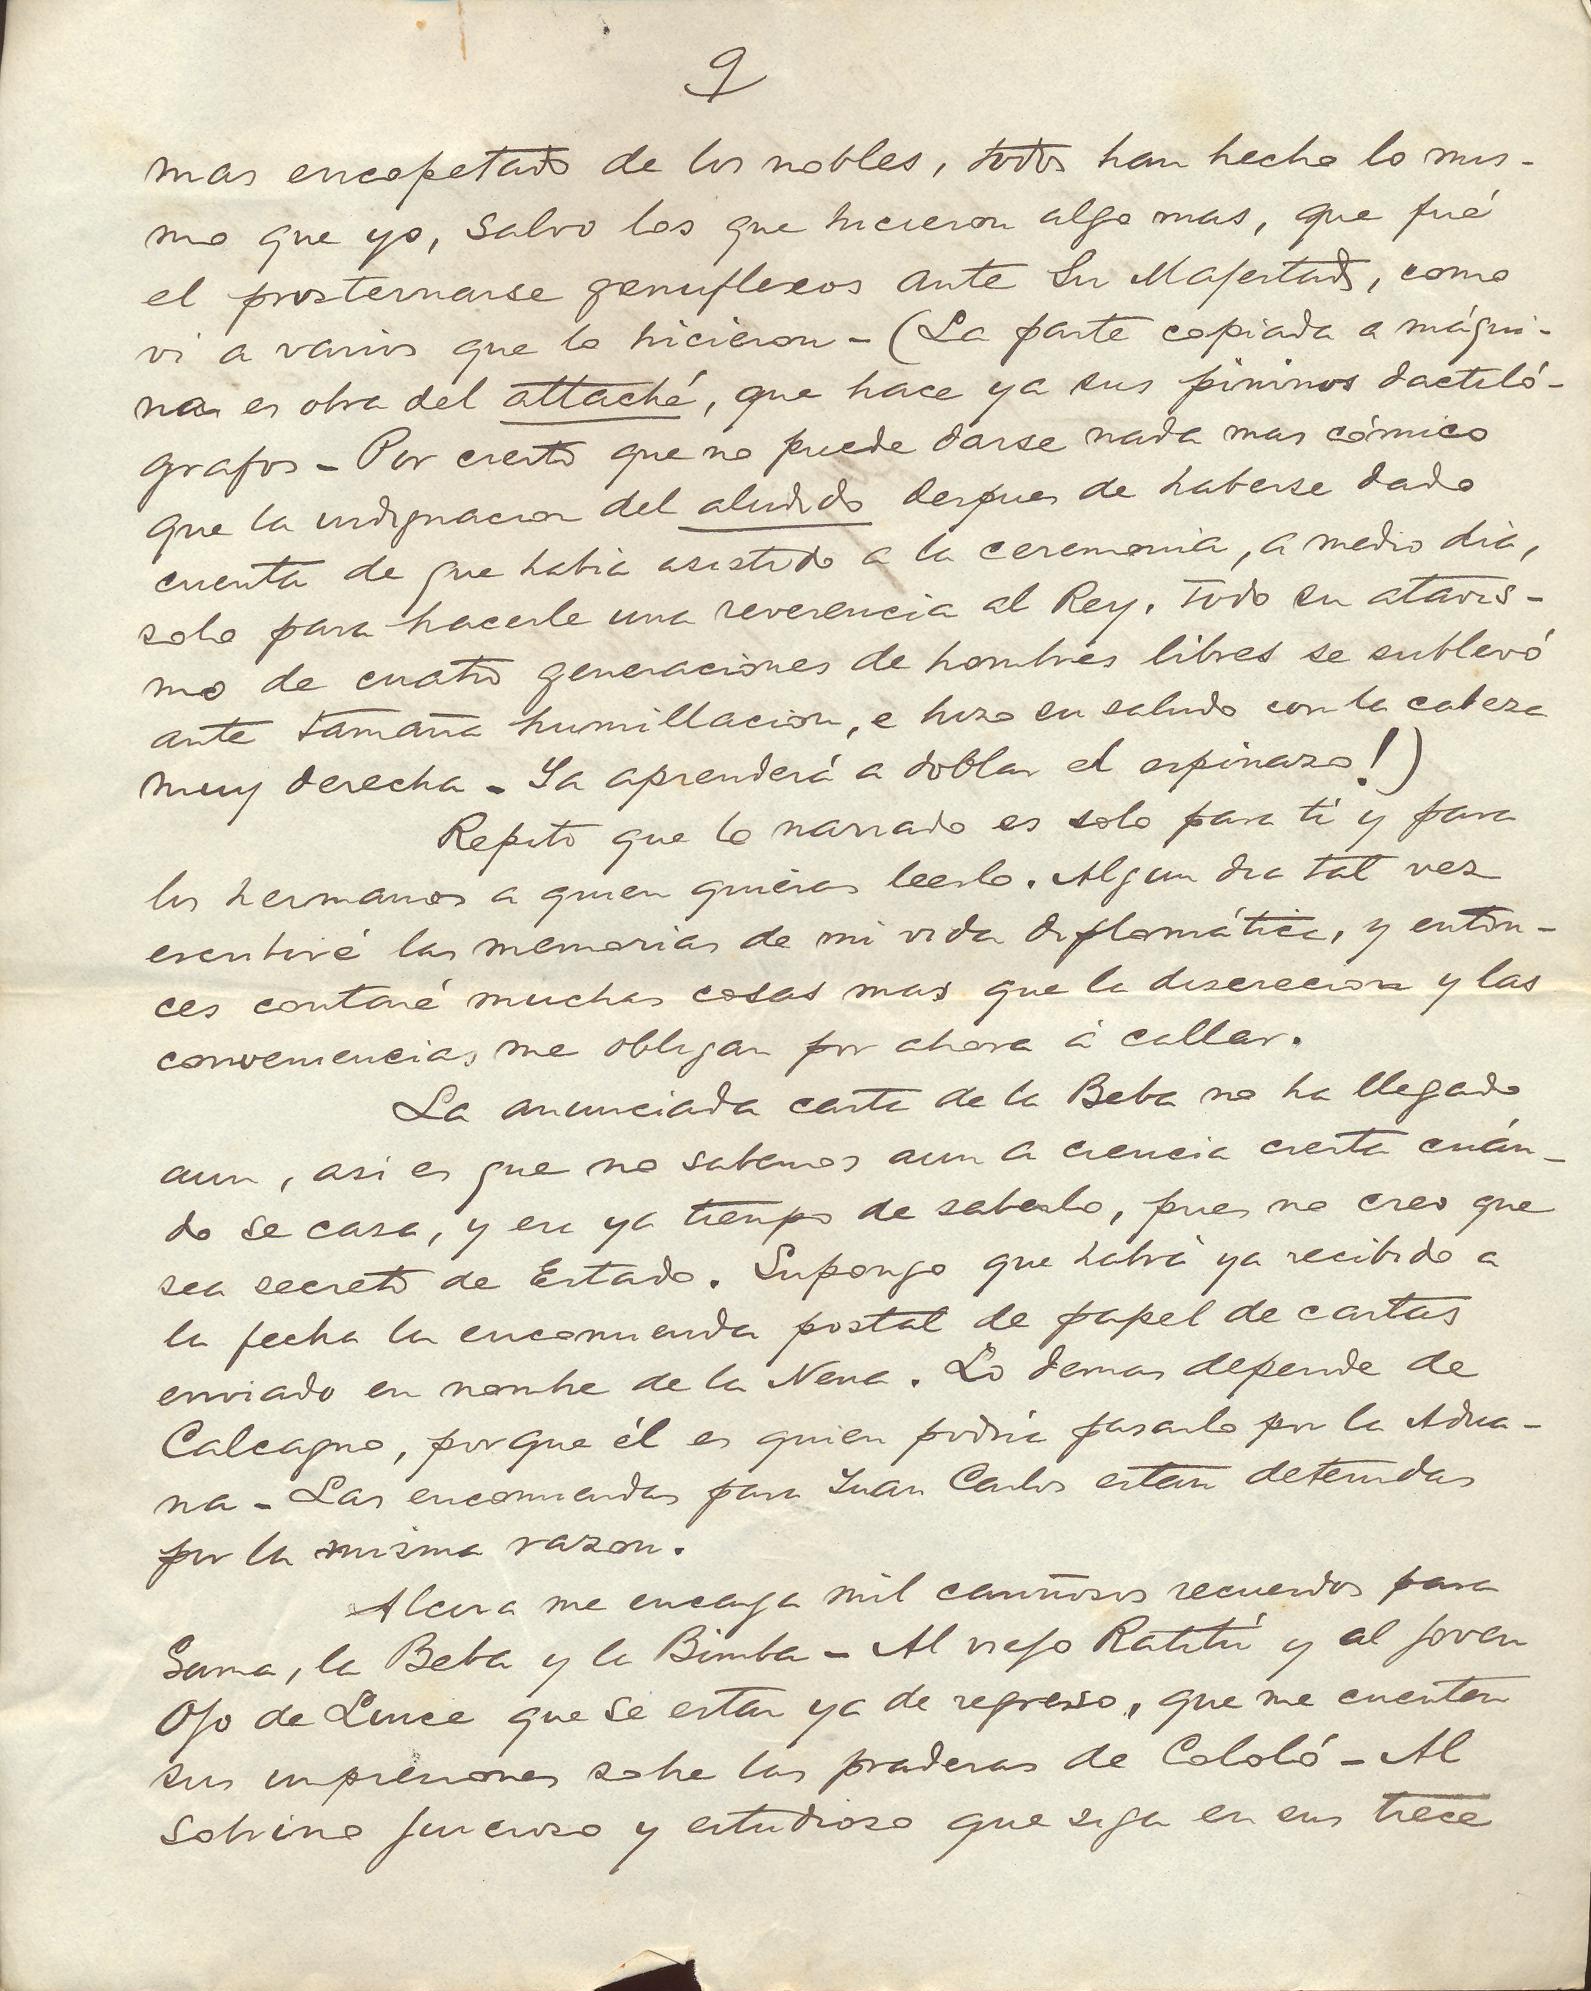 9
mas encopetado de los nobles, todos han hecho lo mis-
mo que yo, salvo los que hicieron algo mas, que fué
el prosternarse genuflexos ante Su Majestad, como
vi a varios que lo hicieron - (La parte copiada a máqui-
na es obra del attaché, que hace ya sus pininos dactiló-
grafos - Por cierto que no puede darse nada mas cómico
que la indignacion del aludido despues de haberse dado
cuenta de que habia asistido a la ceremonia, a medio dia,
solo para hacerle una reverencia al Rey. Todo su atavis-
mo de cuatro generaciones de hombres libres se sublevó
ante tamaña humillacion, e hizo su saludo con la cabeza
muy derecha - Ya aprenderá a doblar el espinazo!)
Repito que lo narrado es solo para tí y para
los hermanos a quien quieras leerlo. Algun dia tal vez
escribiré las memorias de mi vida diplomática, y enton-
ces contaré muchas cosas mas que la discrecion y las
conveniencias me obligan por ahora á callar.
La anunciada carta de la Beba no ha llegado
aun, asi es que no sabemos aun a ciencia cierta cuán-
do se casa, y era ya tiempo de saberlo, pues no creo que
sea secreto de Estado. Supongo que habrá ya recibido a
la fecha la encomienda postal de papel de cartas
enviado en nombre de la Nena. Lo demas depende de
Calcagno, porque él es quien podria pasarlo por la Adua-
na - Las encomiendas para Juan Carlos estan detenidas
por la misma razon.
Alcira me encarga mil cariñosos recuerdos para
la Beba y la Bimba - Al viejo Ratitú y al joven
Ojo de Lince que se estan ya de regreso, que me cuenten
sus impresiones sobre las praderas de Cololó - Al
sobrino juicioso y estudioso que siga en sus trece